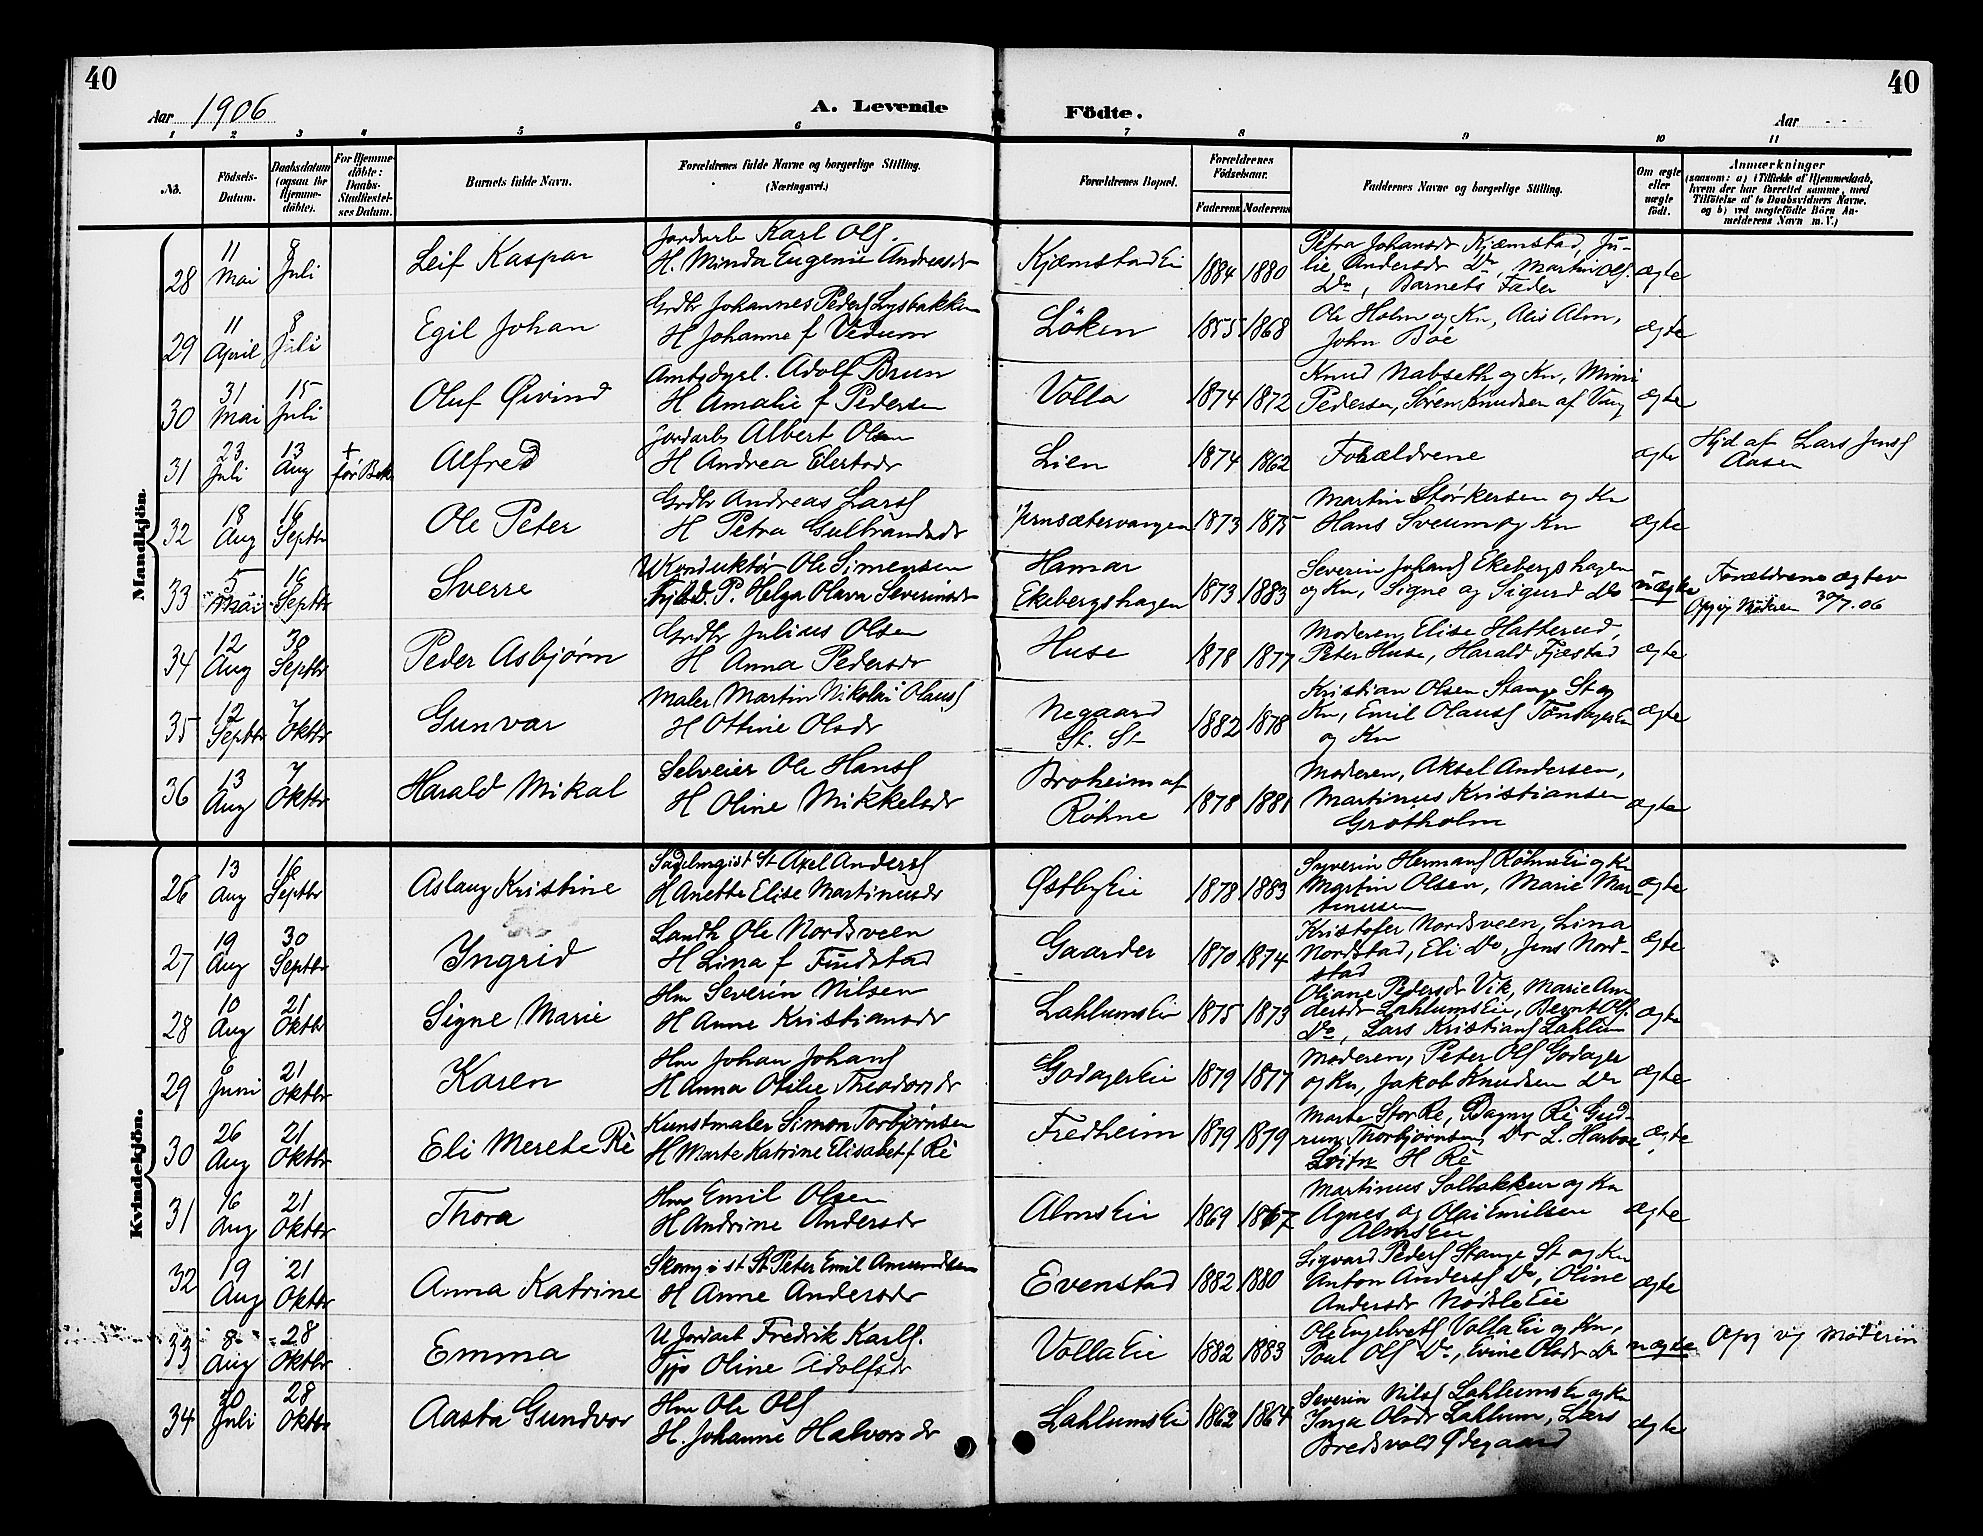 40
40
Aar 1906
A. Levende
Födte.
Aar
1 2 3 4 5 6 7 8 9 10 11
No.
Födsels-Datum.
Daabsdatum (ogsaa for Hjemme-döbte).
For Hjemme-döbte: Daabs-Stadfæstel-ses Datum.
Barnets fulde Navn.
Forældrenes fulde Navne og borgerlige Stilling. (Næringsvei.)
Forældrenes Bopæl.
Forældrenes Födselsaar.
Faderens Moderens
Faddernes Navne og borgerlige Stilling.
Om ægte eller uægte födt.
Anmærkninger
(saasom: a) i Tilfælde af Hjemmedaab,
hvem der har forrettet samme, med
Tilföielse af to Daabsvidners Navne,
og b) ved uægtefödte Börn An-
melderens Navn m. V.)
Mandkjön
28 11 Mai 8 Juli Leif Kaspar
Jordarb Karl Ols.
H. Minda Eugenie Andreasdr
KjæmstadEi 1884 1880
Petra Johansdr Kjæmstad, Ju-
lie Andersdr Do, Martin Ols.
Do, Barnets Fader
ægte
29 11 April 8 Juli Egil Johan
Grdbr Johannes Peders Lysbakken
H Johanne f Vedum
Löken 1855 1868
Ole Holm og Kn, Alm,
John Bóe
ægte
30 31 Mai 15 Juli Oluf Øivind
Adolf Brun
H Amalie f Pedersen
Volla 1874 1872
Knud Nabseth og Kn, Mimi
Pedersen, Sören Knudsen af Vang
ægte
31 23 Juli 13 Aug + før Bek Alfred
Jordarb Albert Olsen
H Andrea Elertsdr
Lien 1874 1862
Forældrene
ægte
Hjd af Lars Jens
Aasen
32 18 Aug 16 Septbr Ole Peter
Grdbr Andreas Lars
H Petra Gulbrandsdr
1873 1875
Martin Størkersen og Kn
Hans Sveum og Kn
ægte
33 5 Mai 16 Septbr Sverre
U Konduktør Ole Simensen
P. Helga Olava Severinsdr
Hamar
Ekebergshagen 1873 1883
Severin Johans Ekebergshagen
og Kn, Signe og Sigurd Do
uægte
Forældrene ægtev
Opg ig Mødren 30/7.06
34 12 Aug 30 Septbr Peder Asbjørn
Grdbr Julius Olsen
H Anna Pedersdr
Huse 1878 1877
Moderen, Elise Hatterud,
Peter Huse, Harald Fjæstad
ægte
35 12 Septbr 7 Oktbr Gunvar
Maler Martin Nikolai Olaus
H Ottine Olsdr
Negaard
St. St 1882 1878
Kristian Olsen Stange St og
Kn, Emil Olaus
og Kn
ægte
36 13 Aug 7 Oktbr Harald Mikal
Selveier Ole Hans
H Oline Mikkelsdr
Broheim af
Röhne 1878 1881
Moderen, Aksel Andersen,
Martinus Kristiansen
Grøtholm
ægte
Kvindekjön.
26 13 Aug 16 Septbr Aslaug Kristine
St Axel Anders
H Anette Elise Martinusdr
ØstbyEi 1878 1883
Syverin Hermans RöhneEi og Kn
Martin Olsen, Marie Mar-
tinusen
ægte
27 19 Aug 30 Septbr Ingrid
Landh Ole Nordsveen
H Lina f Finstad
Gaarder 1870 1874
Kristofer Nordsveen, Lina
Nordstad, Eli Do, Jens Nord-
stad
ægte
28 10 Aug 21 Oktbr Signe Marie
Hm Severin Nilsen
H Anne Kristiansdr
LahlumsEi 1875 1873
Oliane Pedersdr Vik, Marie An-
dersdr LahlumsEi, Bernt Ols.
Do, Lars Kristians Lahlum
ægte
29 6 Juni 21 Oktbr Karen
Hm Johan Johans
H Anna Otilie Theodorsdr
GodagerEi 1879 1877
Moderen, Peter Ols Godager
og Kn, Jakob Knudsen Do
ægte
30 26 Aug 21 Oktbr Eli Merete Rè
Kunstmaler Simon Torbjørnsen
H Marte Katrine Elisabet f Rè
Fredheim 1879 1879
Marte Stor Re, Dagny Rè Gud-
run Thorbjørnsen, Dr L. Harboe
H Rè
ægte
31 16 Aug 21 Oktbr Thora
Hm Emil Olsen
H Andrine Andersdr
AlmsEie 1869 1867
Martinus Solbakken og Kn
Agnes og Olai Emilsen
AlmsEie
ægte
32 19 Aug 21 Oktbr Anna Katrine
St Peter Emil Amundsen
H Anne Andersdr
Evenstad 1882 1880
Sigvard Peders Stange St og Kn
Anton Anders Do, Oline
Andersdr NødsleEie
ægte
33 8 Aug 28 Oktbr Emma
U Jordarb Fredrik Karls.
Pge Oline Adolfsdr
VollaEie 1882 1883
Ole Engebrets VollaEi og Kn,
Poul Ols Do, Evine Olsdr Do
uægte
Opg ig Moderen
34 20 Juli 28 Oktbr Aasta Gundvor
Hm Ole Ols
H. Johanne Halvorsdr
LahlumsEi 1862 1864
Severin Nils LahlumsEi og Kn
Inga Olsdr Lahlum, Lars
Bredsvold Ødegaard
ægte